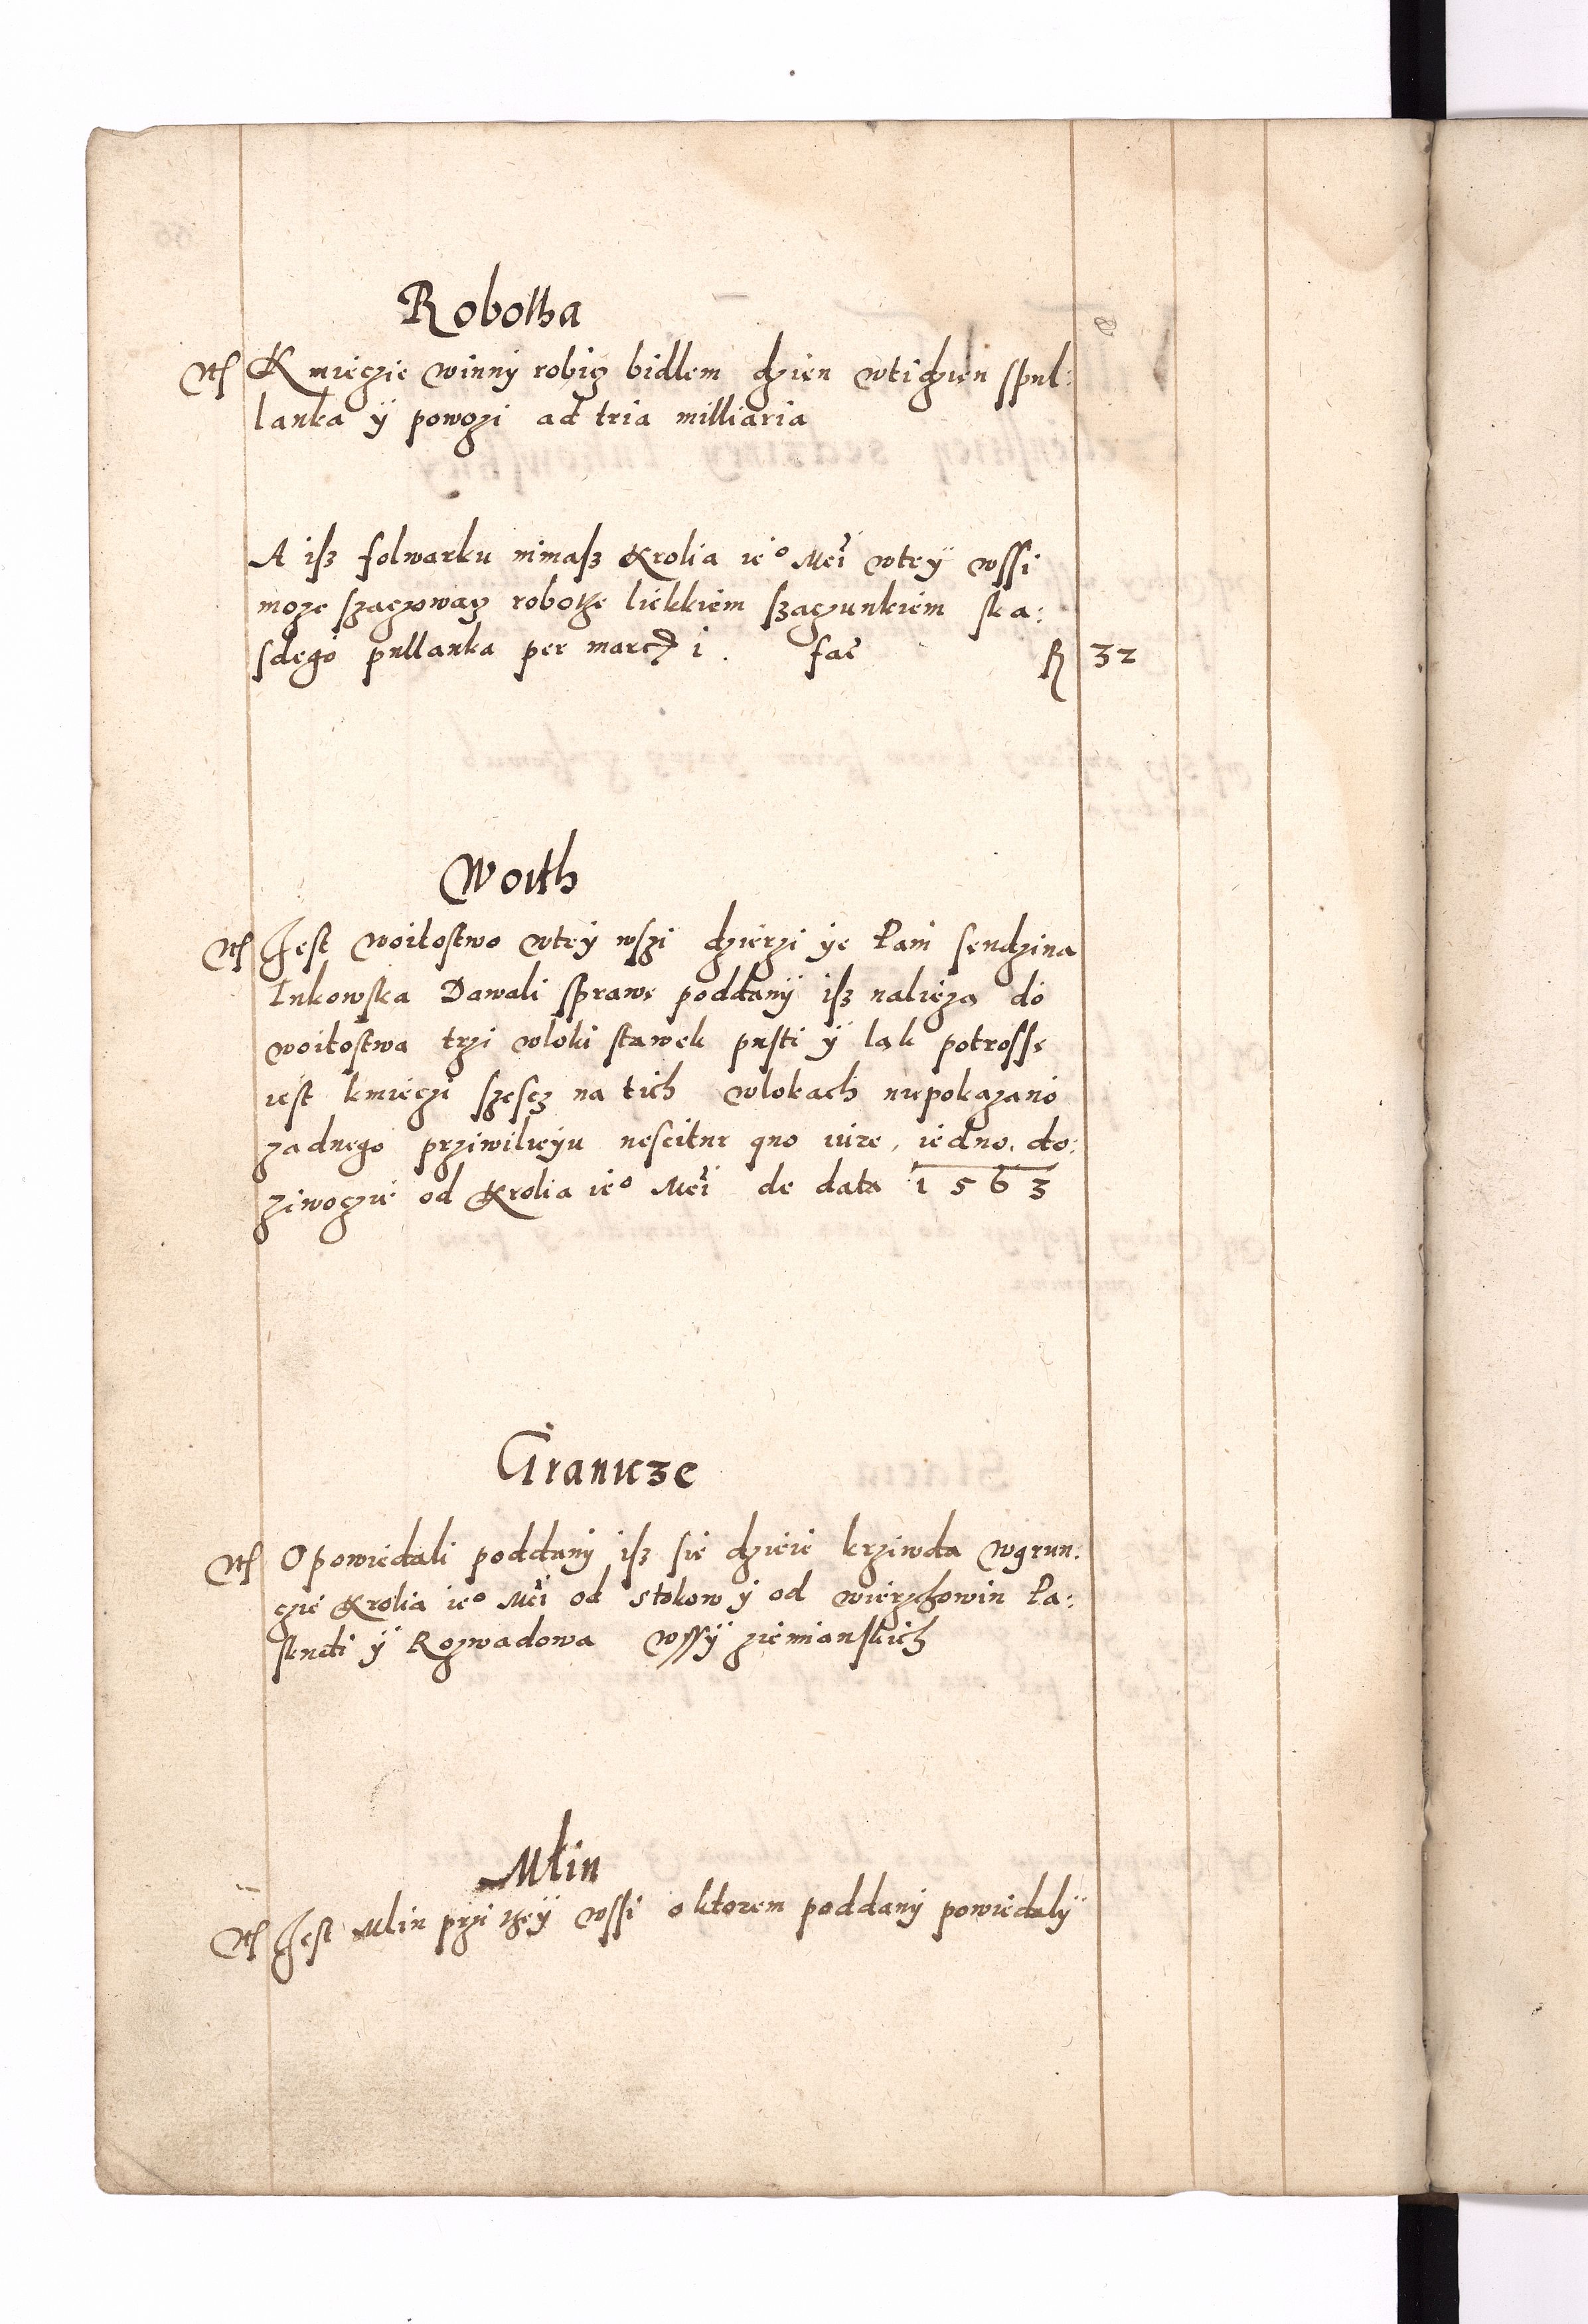 Robotha
Kmieczie winny robicz bidlem dzien wtidzien spul:
lanka ÿ powozi ad tria milliaria
A isz folwarku nimasz Krolia ie° Mći wteÿ wssi
moze szaczowacz robothe liekkiem szaczunkiem ska:
sdego pullanka per marc i . fać R 32
Woith
Jest woitostwo wteÿ wszi dzierzi ÿe Pani sendzina
Lukowska Dawali sprawe poddanÿ isz nalieza do
woitostwa trzi wloki stawek pusti ÿ lak potrosse
iest kmieczi szescz na tich wlokach niepokazano
zadnego prziwileÿu nescitur quo iure, iedno. do:
ziwoczie od Krolia ie° Mći de data 1563
Granicze
Opowiedali poddanÿ isz sie dzieie krziwda wgrun:
czie Krolia ie° Mći od Stokow ÿ od wierzchowin Pa:
skudi ÿ Rozwadowa wssÿ ziemianskich
Mlin
Jest Mlin przi theÿ wssi o ktorem poddanÿ powiedalÿ